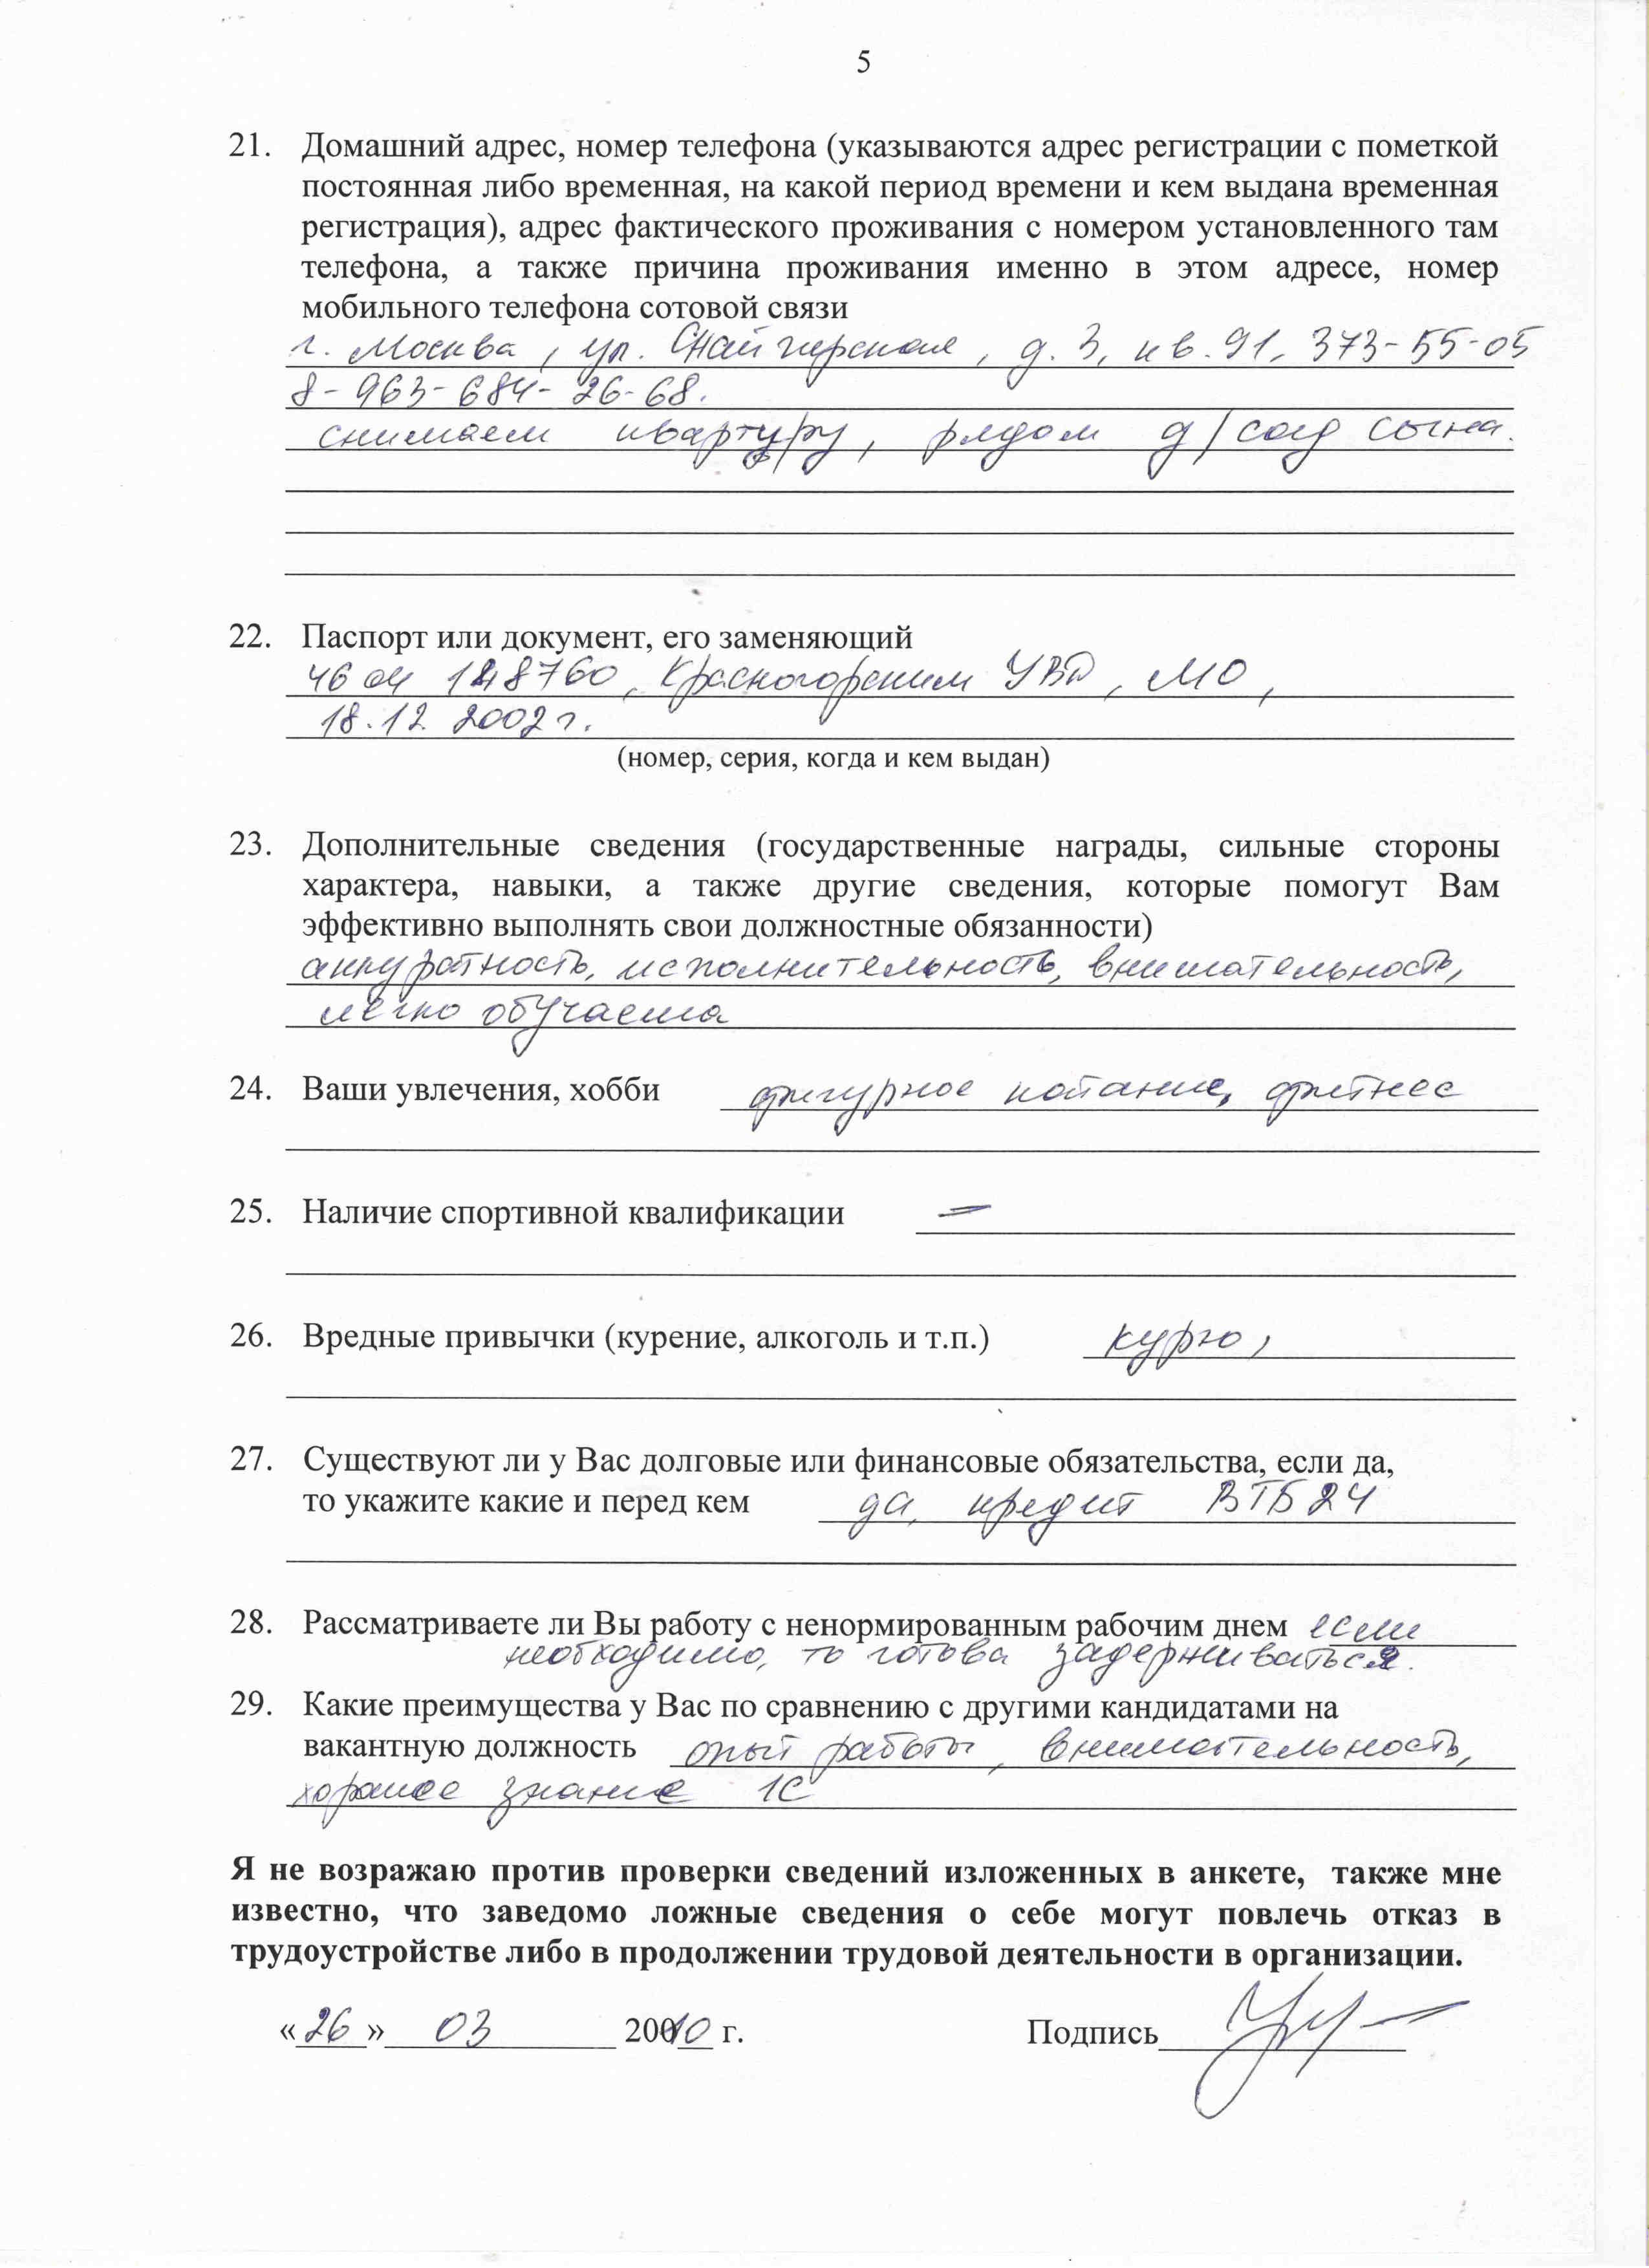 5
21. Домашний адрес, номер телефона (указываются адрес регистрации с пометкой
постоянная либо временная, на какой период времени и кем выдана временная
регистрация), адрес фактического проживания с номером установленного там
телефона, а также причина проживания именно в этом адресе, номер
мобильного телефона сотовой связи
г. Москва, ул. Снайперская, д. 3, кв. 91, 373-55-05
8-963-684-26-68.
снимаем квартуру, рядом д/сад сына.
22. Паспорт или документ, его заменяющий
46 04 148760, Красногорским УВД, МО,
18.12 2002 г.
(номер, серия, когда и кем выдан)
23. Дополнительные сведения (государственные награды, сильные стороны
характера, навыки, а также другие сведения, которые помогут Вам
эффективно выполнять свои должностные обязанности)
аккуратность, исполнительность, внимательность,
легко обучаема
24. Ваши увлечения, хобби фигурное катание, фитнес
25. Наличие спортивной квалификации —
26. Вредные привычки (курение, алкоголь и т.п.) курю,
27. Существуют ли у Вас долговые или финансовые обязательства, если да,
то укажите какие и перед кем да, кредит ВТБ 24
28. Рассматриваете ли Вы работу с ненормированным рабочим днем если
необходимо, то готова задерживаться.
29. Какие преимущества у Вас по сравнению с другими кандидатами на
вакантную должность опыт работы, внимательность,
хорошее знание 1С
Я не возражаю против проверки сведений изложенных в анкете, также мне
известно, что заведомо ложные сведения о себе могут повлечь отказ в
трудоустройстве либо в продолжении трудовой деятельности в организации.
«26» 03 2010 г. Подпись